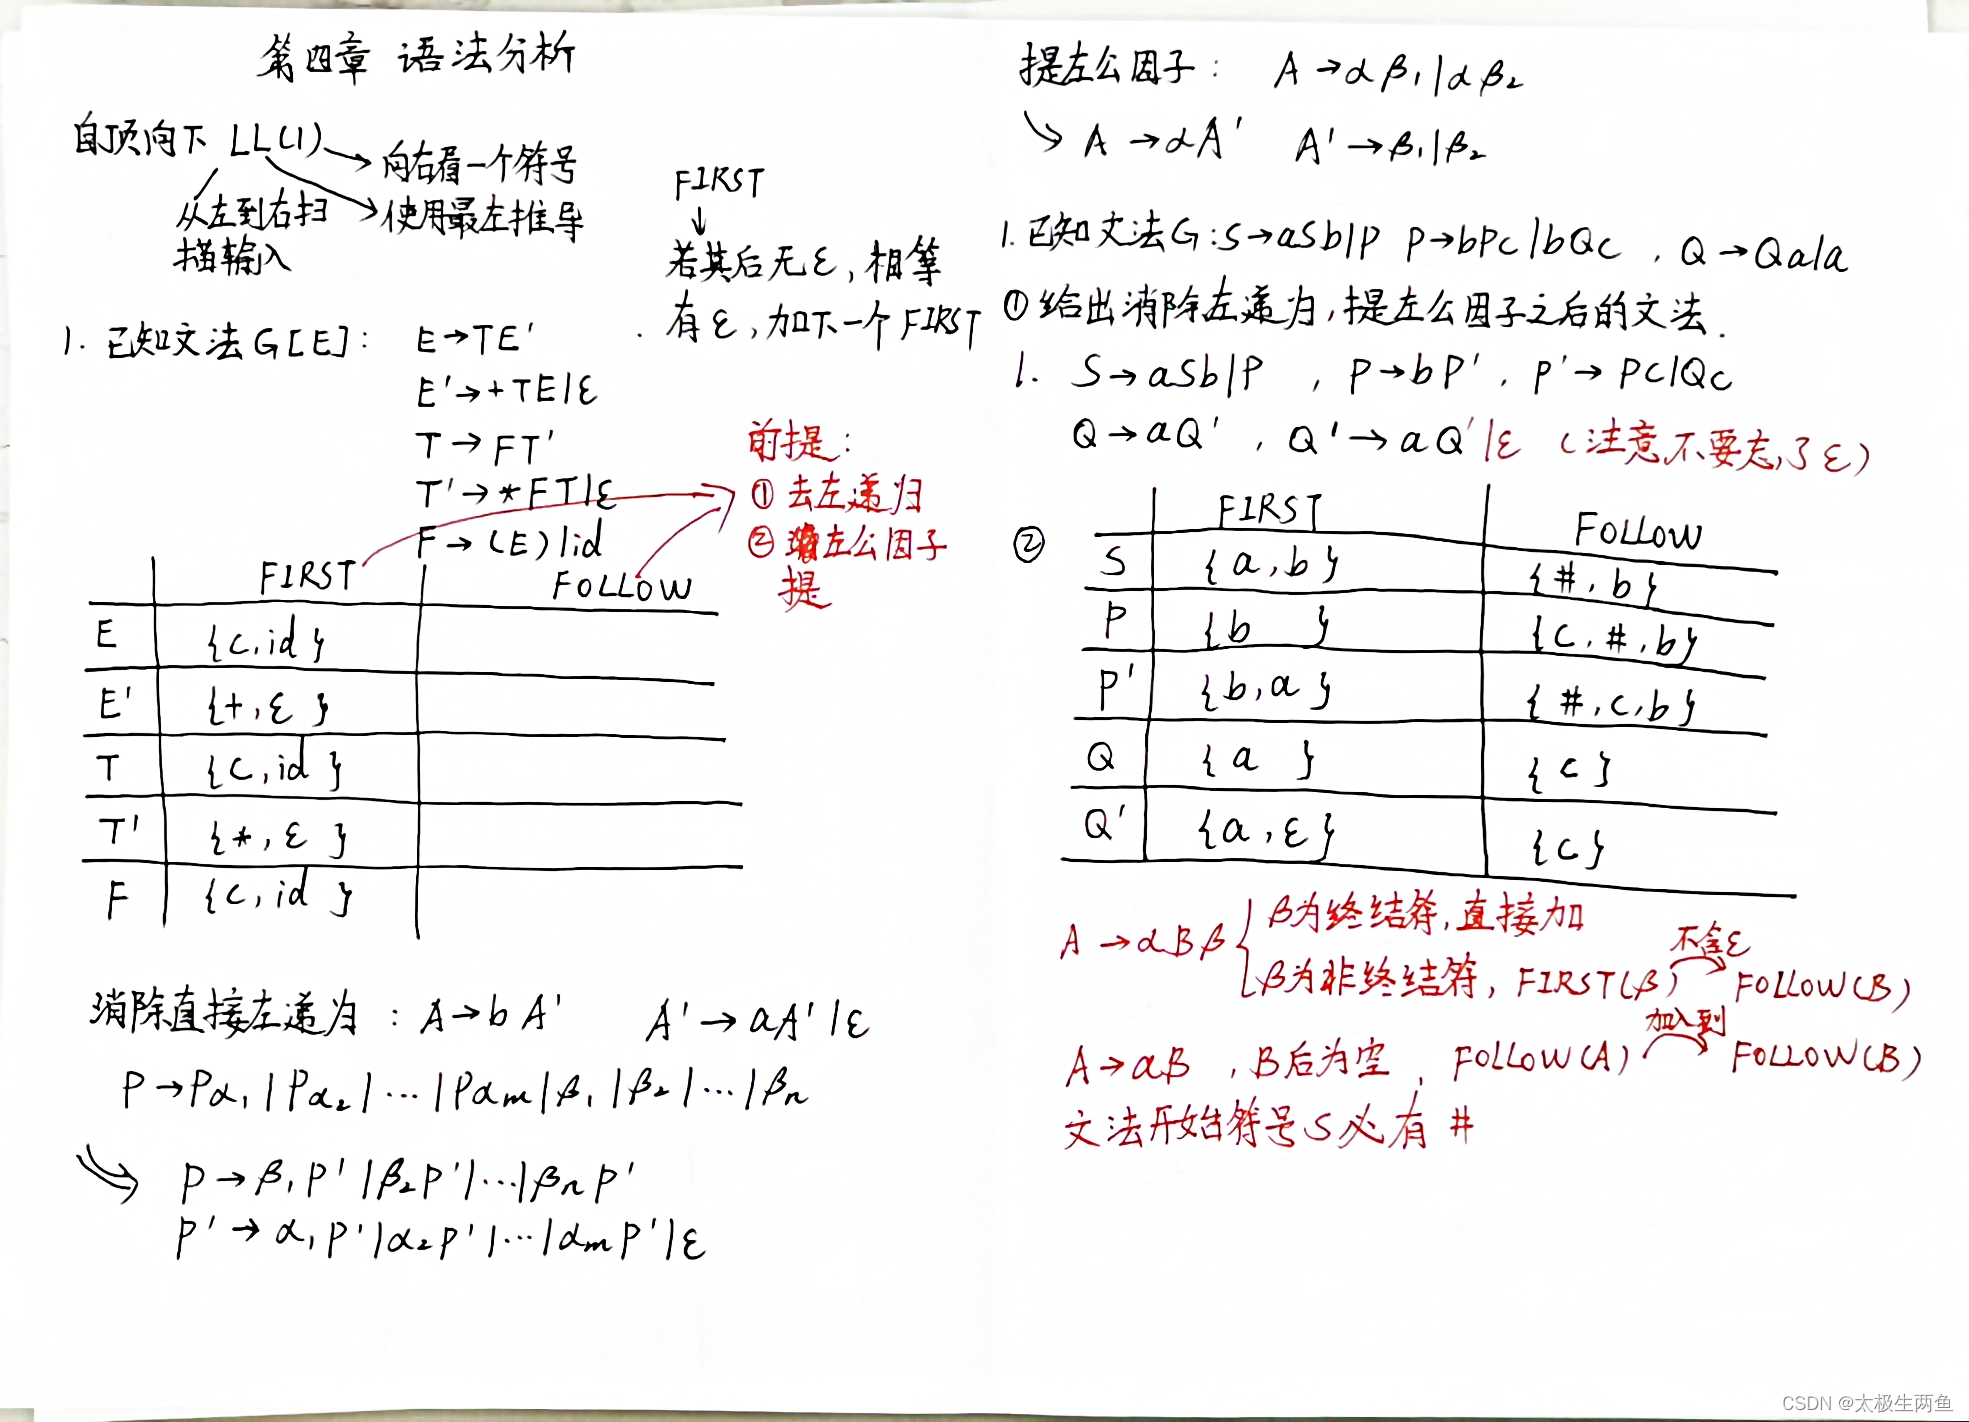 第四章 语法分析
自顶向下 LL(1)
向右看一个符号
从左到右扫
描输入
使用最左推导
FIRST
↓
若其后无ε,相等
有ε,加下一个FIRST
1. 已知文法G[E]: E→TE'
E'→+TE|ε
T→FT'
T'→*FT|ε
F→(E)|id
前提:
①去左递归
②左公因子
提
FIRST FOLLOW
E {(,id}
E' {+,ε}
T {(,id}
T' {*,ε}
F {(,id}
消除直接左递归: A→bA' A'→aA'|ε
P→Pα₁|Pα₂|…|Pαm|β₁|β₂|…|βn
P→β₁P'|β₂P'|…|βnP'
P'→α₁P'|α₂P'|…|αmP'|ε
提左公因子: A→αβ₁|αβ₂
A→αA' A'→β₁|β₂
1.已知文法G:S→aSb|P P→bPc|bQc,Q→Qa|a
①给出消除左递归,提左公因子之后的文法.
1. S→aSb|P , P→bP', P'→Pc|Qc
Q→aQ', Q'→aQ'|ε (注意,不要忘了ε)
②
FIRST FOLLOW
S {a,b} {#,b}
P {b } {c,#,b}
P' {b,a} {#,c,b}
Q {a } {c}
Q' {a,ε} {c}
A→αBβ
β为终结符,直接加
β为非终结符, FIRST(β) 不含ε FOLLOW(B)
A→αB ,B后为空, FOLLOW(A) 加入到 FOLLOW(B)
文法开始符号S必有#
CSDN @太极生两鱼